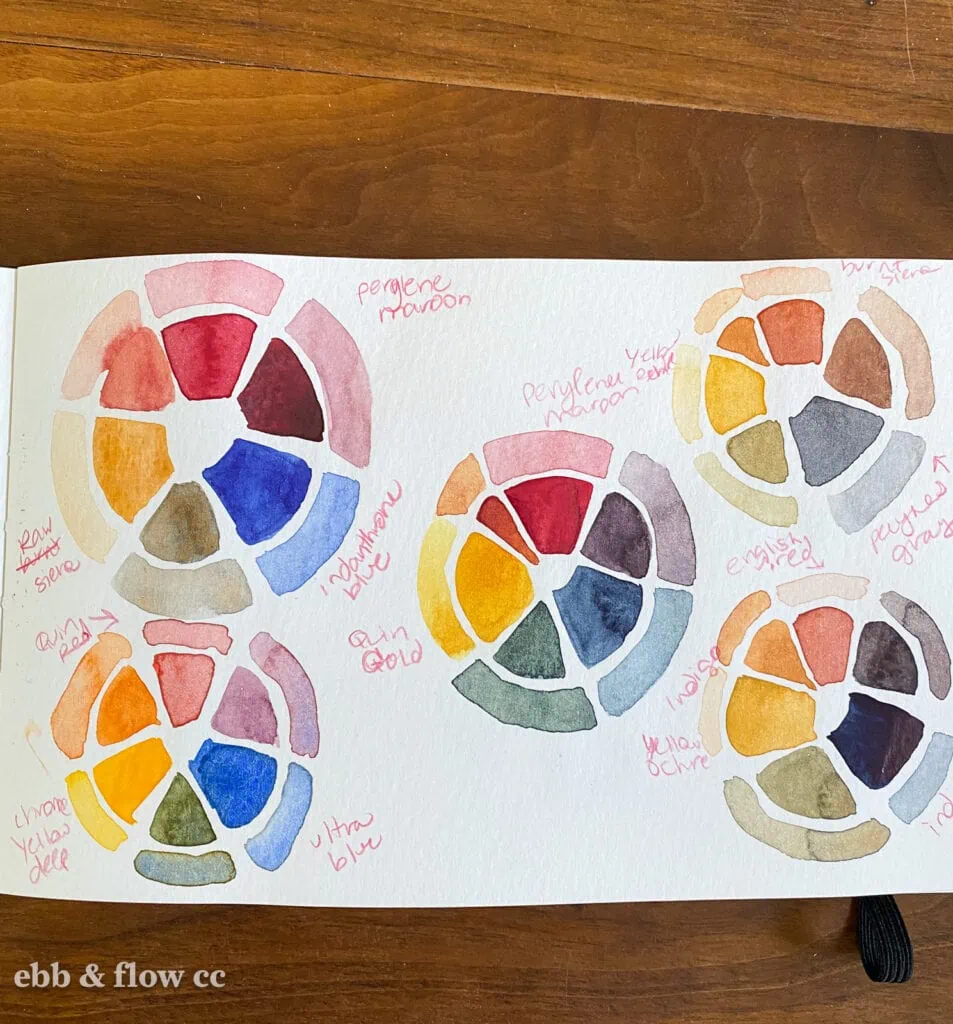 perylene
maroon
raw
burnt
siena
indanthrone
blue
Quin
red
chrome
yellow
deep
ultra
blue
perylene
maroon
Quin
Gold
burnt
siena
yello
ochre
peynes
gray
english
red
indigo
yellow
ochre
ind
ebb & flow cc